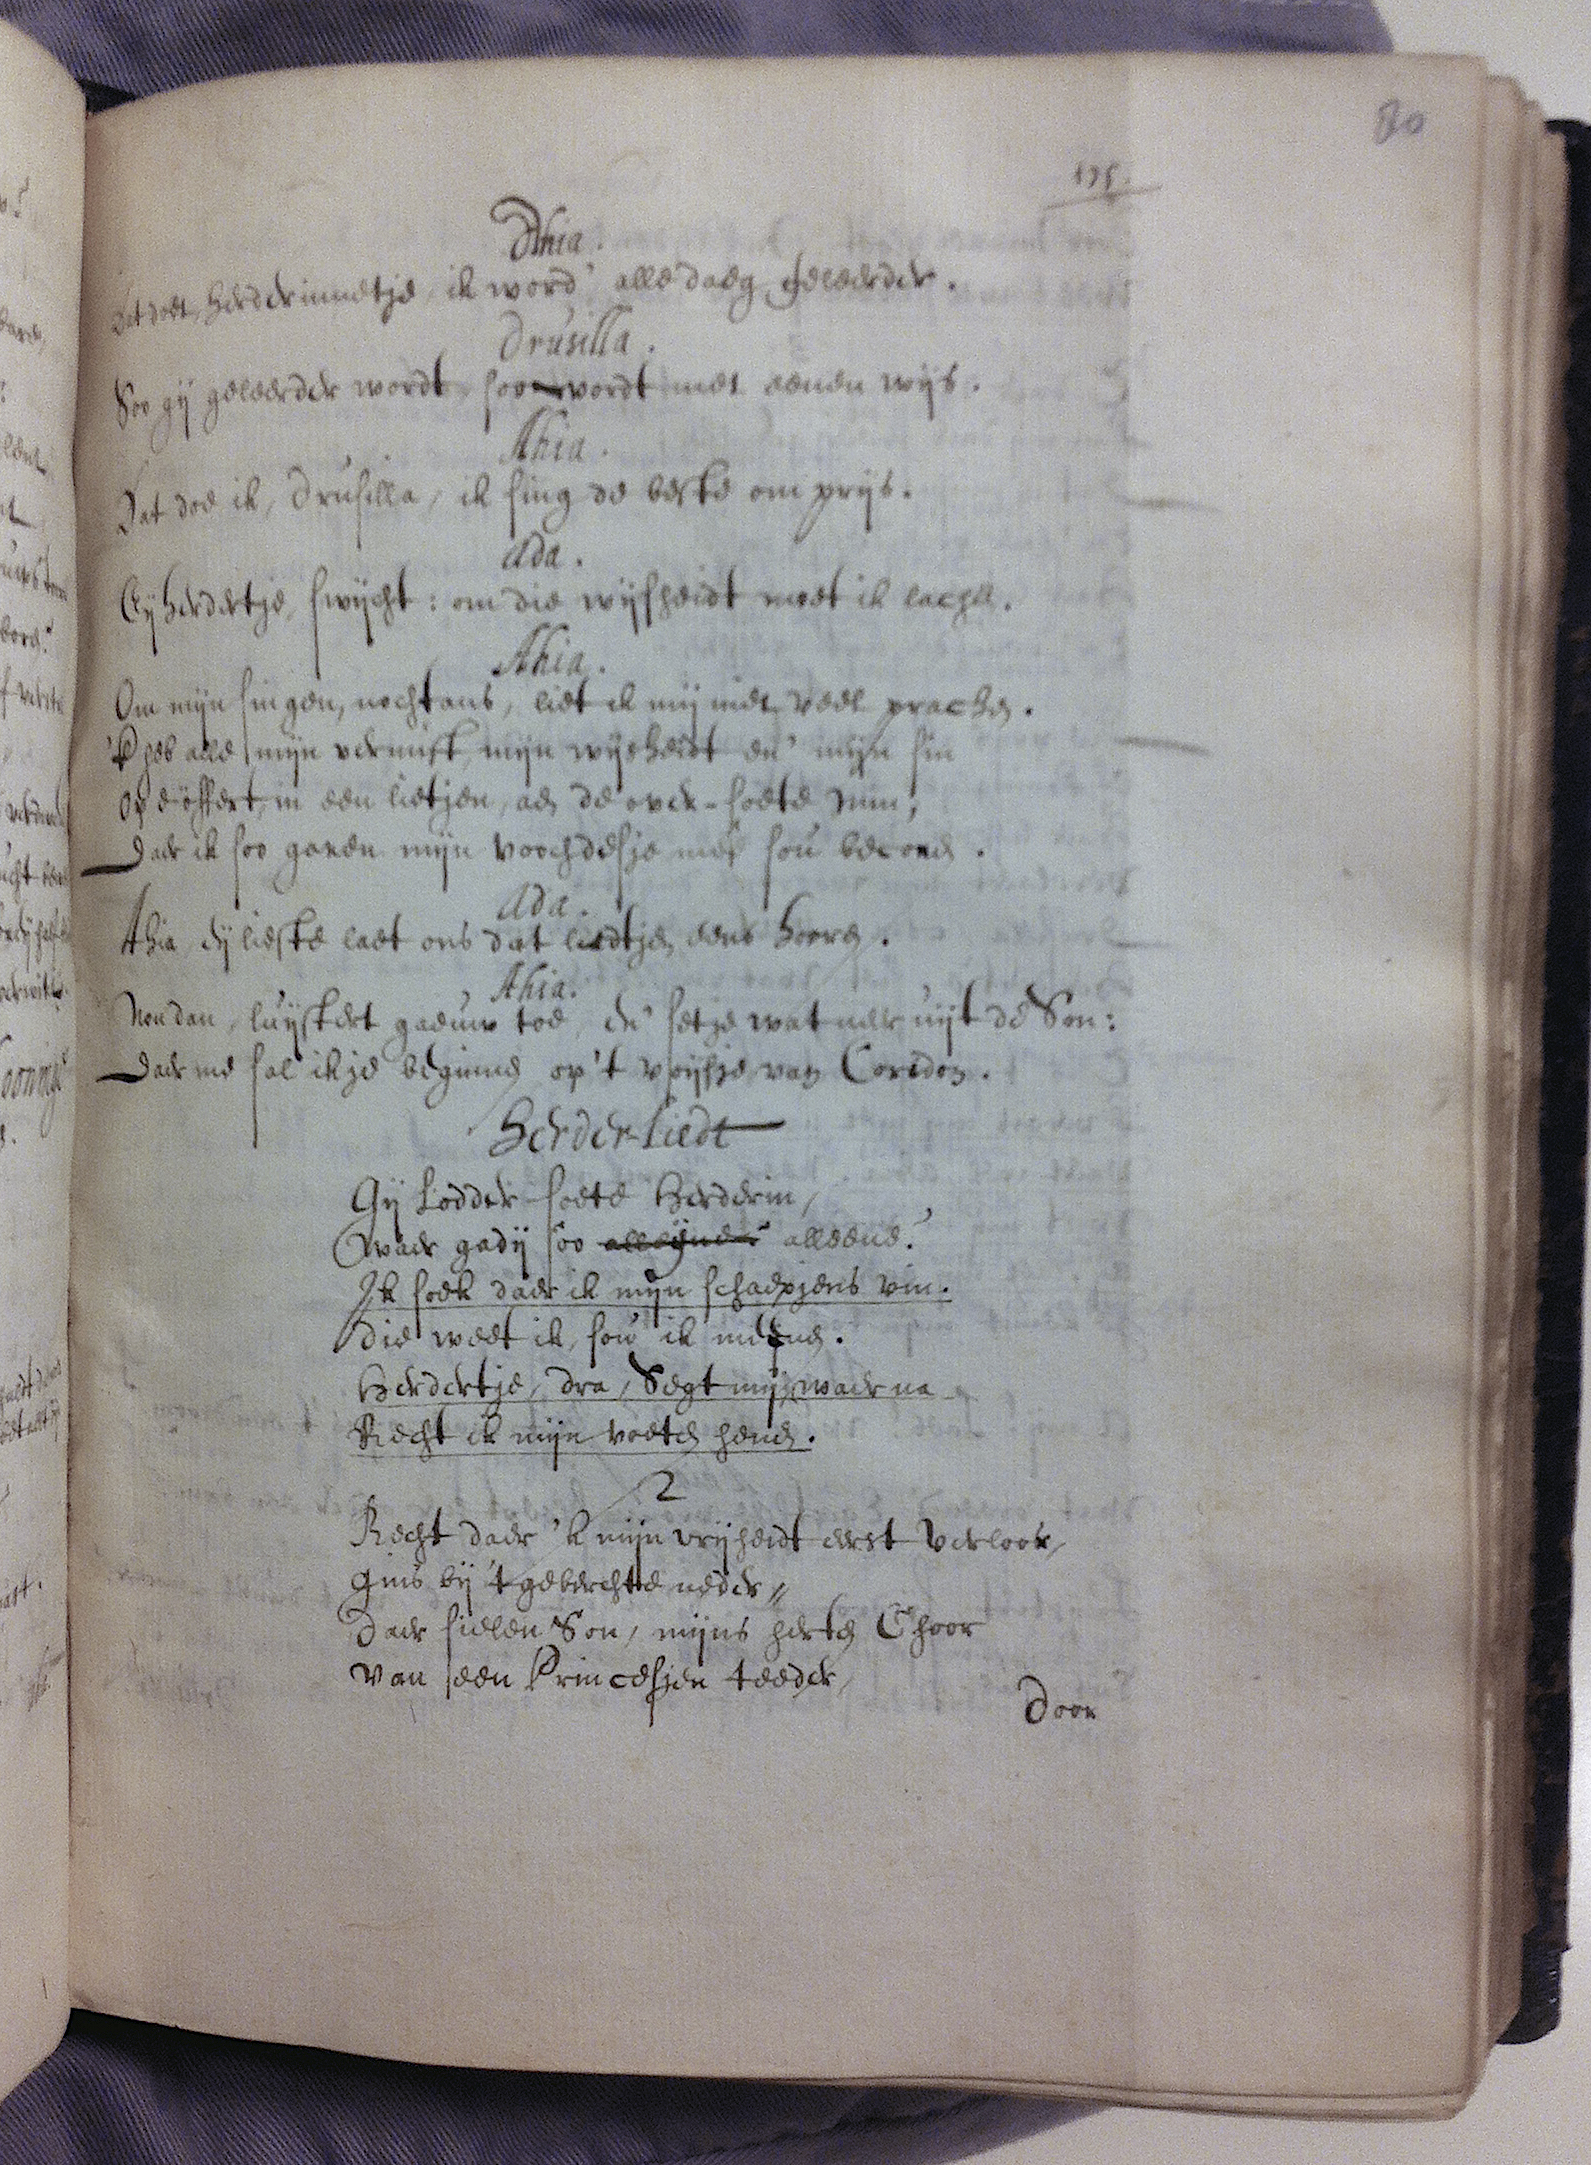 80
175.
Ahia.
Dat doet, herderinnetje, ik word' alle daeg geleerder.
Drusilla.
Soo gij geleerder wordt, soo wordt met eenen wijs.
Ahia.
Dat doe ik, Drusilla, ik sing de beste om prijs.
Ada.
Eÿ herdertje, swijcht: om die wijsheidt moet ik lachen.
Ahia.
Om mijn singen, nochtans, liet ik mij niet veel prachen.
'k heb alle mijn vernuft, mijn wijsheidt en' mijn sin
Op eöffert, in een lietjen, aen de over-soete min,
Daer ik soo garen mijn voochdesje meê soú becoren.
Ada.
Ahia, dij liefste laet ons dat liedtjen eens hooren.
Ahia.
Nou dan, lúijstert gaeúw toe, en' setje wat neer úijt de Son:
Daer me sal ik je beginnen op 't voijsje van Coridon.
Herder-liedt
Gij lodder-soete Herderin,
Waer gadij soo alleijnen alleene?
Ik soek daer ik mijn schaepjens vin.
Die weet ik, soú ik meenen.
Herdertje, dra, Segt mij, waer na
Recht ik mijn voeten henen.
2
Recht daer 'k mijn vrijheidt eerst verloor,
Gins bij 't geberchte neder,,
Daer sielen Son, mijns herten Choor
Van een Princesjen teeder,
Door